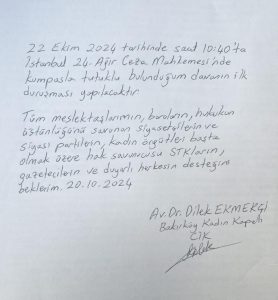 22 Ekim 2024 tarihinde saat 10:40'ta
İstanbul 24. Ağır Ceza Mahkemesi'nde
kumpasla tutuklu bulunduğum davanın ilk
duruşması yapılacaktır.
Tüm meslektaşlarımın, baroların, hukukun
üstünlüğünü savunan siyasetçilerin ve
siyasi partilerin, kadın örgütleri başta
olmak üzere hak savunucusu STK'ların,
gazetecilerin ve duyarlı herkesin desteğini
beklerim. 20.10.2024
Av. Dr. Dilek EKMEKÇİ
Bakırköy Kadın Kapalı
CİK